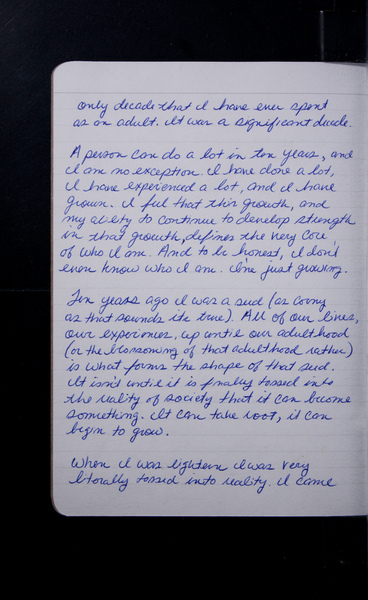 only decade that I have ever spent
as an adult. It was a significant decade.
A person can do a lot in ten years, and
I am no exception. I have done a lot,
I have experienced a lot, and I have
grown. I feel that this growth, and
my ability to continue to develop strength
in that growth, defines the very core
of who I am. And to be honest, I don't
even know who I am. I'm just growing.
Ten years ago I was a seed (as corny
as that sounds its true). All of our lives,
our experiences, up until our adulthood
(or the blossoming of that adulthood rather)
is what forms the shape of that seed.
It isn't until it is finally tossed into
the reality of society that it can become
something. It can take root, it can
begin to grow.
When I was eighteen I was very
literally tossed into reality. I came